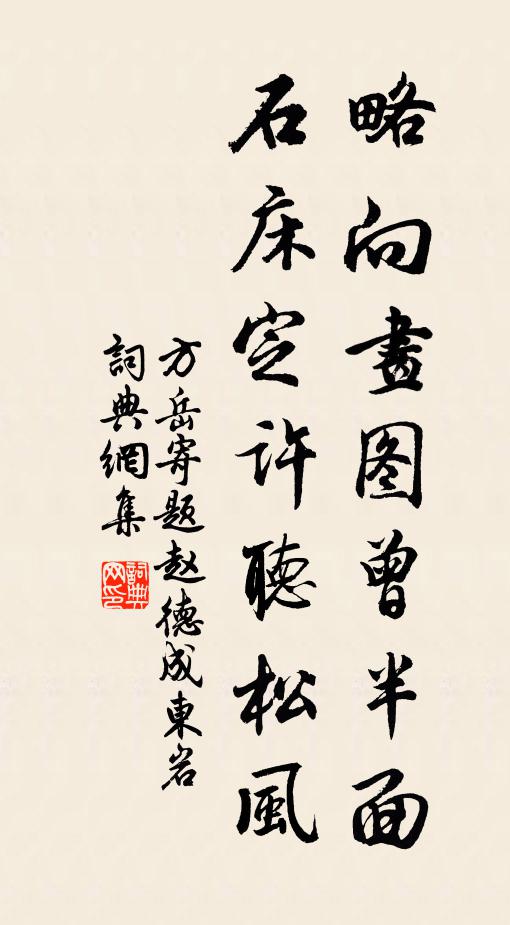 略向畫图曾半面
石床定许聽松風
方岳寄题赵德成東岩
詞典網集
詞典网印